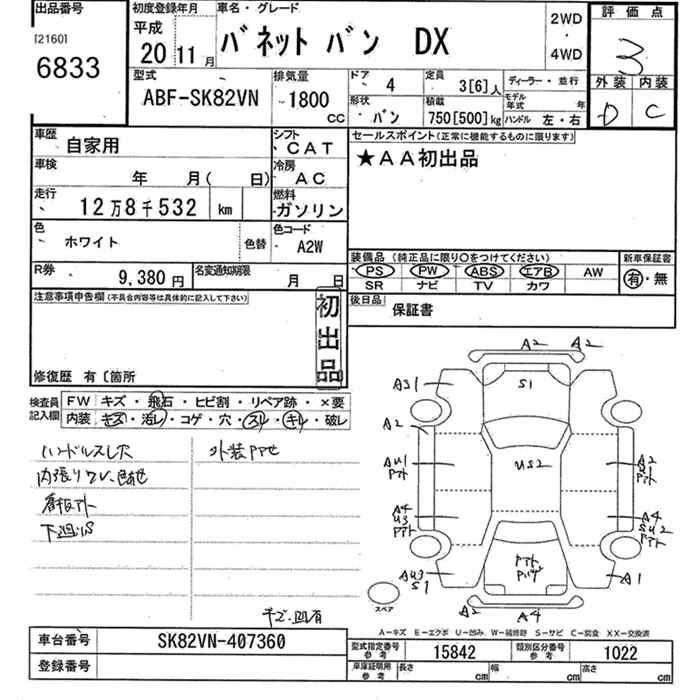 出品番号 初度登録年月 車名・グレード 評価点
[2160]
6833
平成
20 11月
バネットバン DX
2WD
・
4WD
3
外装 内装
D C
型式
ABF-SK82VN
排気量
1800
CC
ドア 4
定員 3[6]人
ディーラー・並行
形状 バン
積載 750[500]kg
モデル年式 年
ハンドル 左・右
車歴 自家用
シフト CAT
セールスポイント(正常に機能するものに限ります)
★AA初出品
車検 年 月( 日)
冷房 AC
走行 12万8千532 km
燃料 ガソリン
色 ホワイト
色替
色コード A2W
装備品 (純正品に限り○をつけてください)
新車保証書
PS PW ABS エアB AW
SR ナビ TV カワ
有・無
R券 9,380円
名変通知期限 月 日
後日品
保証書
注意事項申告欄(不具合内容等は具体的に記入して下さい)
初出品
修復歴 有〔箇所
検査員記入欄
FW キズ・飛石・ヒビ割・リペア跡・×要
内装・キズ・汚レ・コゲ・穴・スレ・キレ・破レ
ハンドルスレ穴
外装
下廻りS
A2 A2
A31
S1
A2
AU1
US2
A2
U1
A4
U3
A4
SU2
AU3
S1
A1
A2 A4
スペア
A−キズ E−エクボ U−凹み W−補修跡 S−サビ C−腐食 XX−交換済
車台番号 SK82VN-407360
登録番号
型式指定番号 参考 15842
類別区分番号 参考 1022
車庫証明用 参考
長さ cm 幅 cm 高さ cm